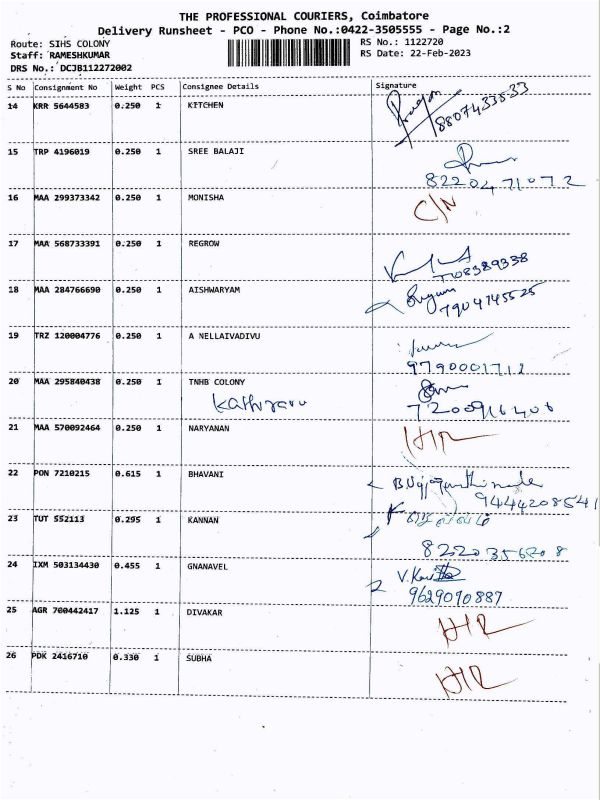 THE PROFESSIONAL COURIERS, Coimbatore
Delivery Runsheet - PCO - Phone No.:0422-3505555 - Page No.:2
Route: SIHS COLONY
RS No.: 1122720
Staff: RAMESHKUMAR
RS Date: 22-Feb-2023
DRS No.: DCJB112272002
S No Consignment No Weight PCS Consignee Details Signature
14 KRR 5644583 0.250 1 KITCHEN 8807433533
15 TRP 4196019 0.250 1 SREE BALAJI
8220471072
16 MAA 299373342 0.250 1 MONISHA C/N
17 MAA 568733391 0.250 1 REGROW
18 MAA 284766690 0.250 1 AISHWARYAM
7904745525
19 TRZ 120004776 0.250 1 A NELLAIVADIVU
9790001712
20 MAA 295840438 0.250 1 TNHB COLONY
7200916406
21 MAA 570092464 0.250 1 NARYANAN
22 PON 7210215 0.615 1 BHAVANI
9444208541
23 TUT 552113 0.295 1 KANNAN
8220356208
24 IXM 503134430 0.455 1 GNANAVEL
9629090887
25 AGR 700442417 1.125 1 DIVAKAR
26 PDK 2416710 0.330 1 SUBHA